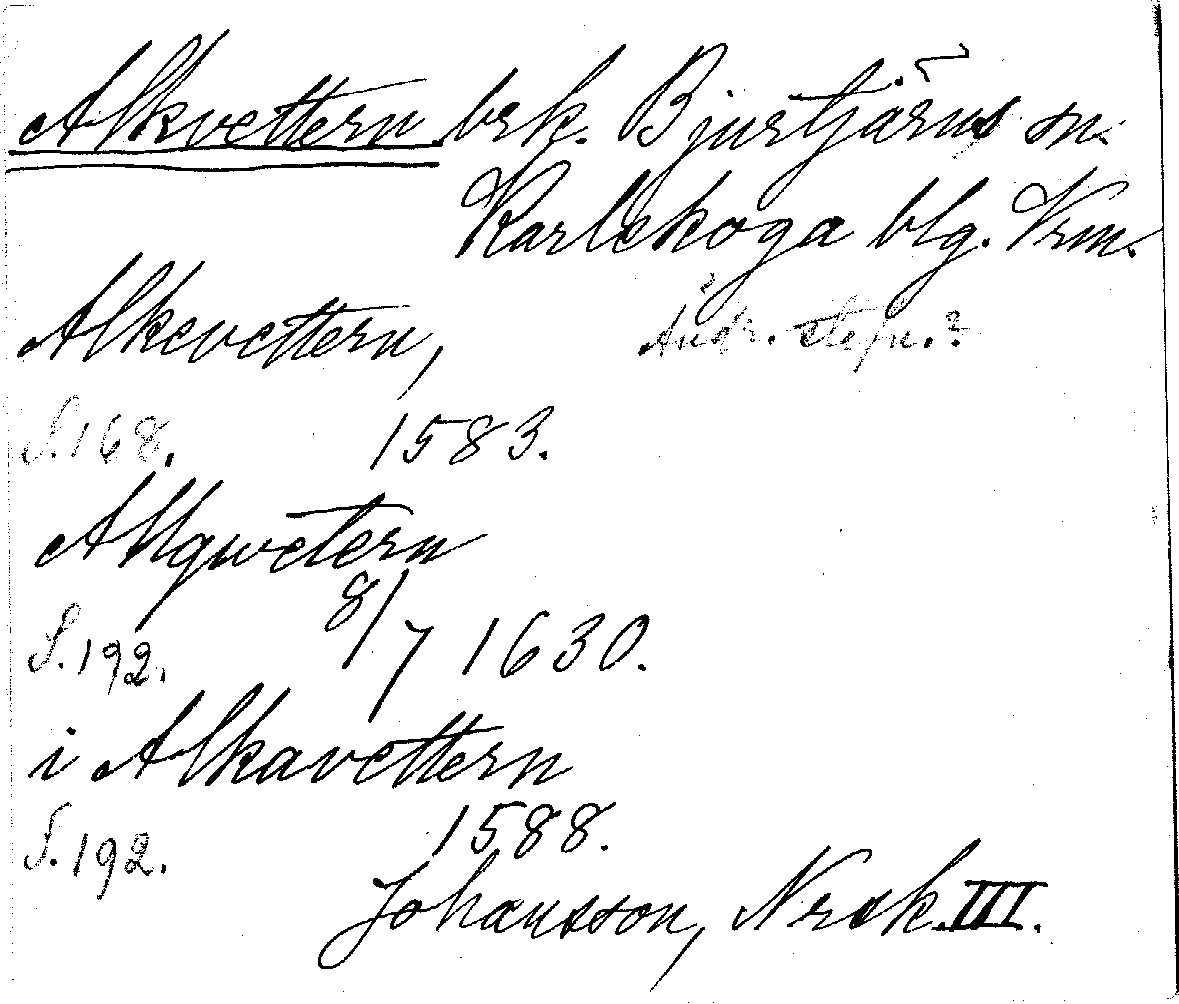 Alkvettern brk. Bjurtjärns sn.
Karlskoga blg. Vrm.
Alkevettern,
Andr. stafn.?
S. 168. 1583.
Allgwetern
S. 192. 8/7 1630.
i Alkavettern
S. 192. 1588.
Johansson, Nrsk. III.